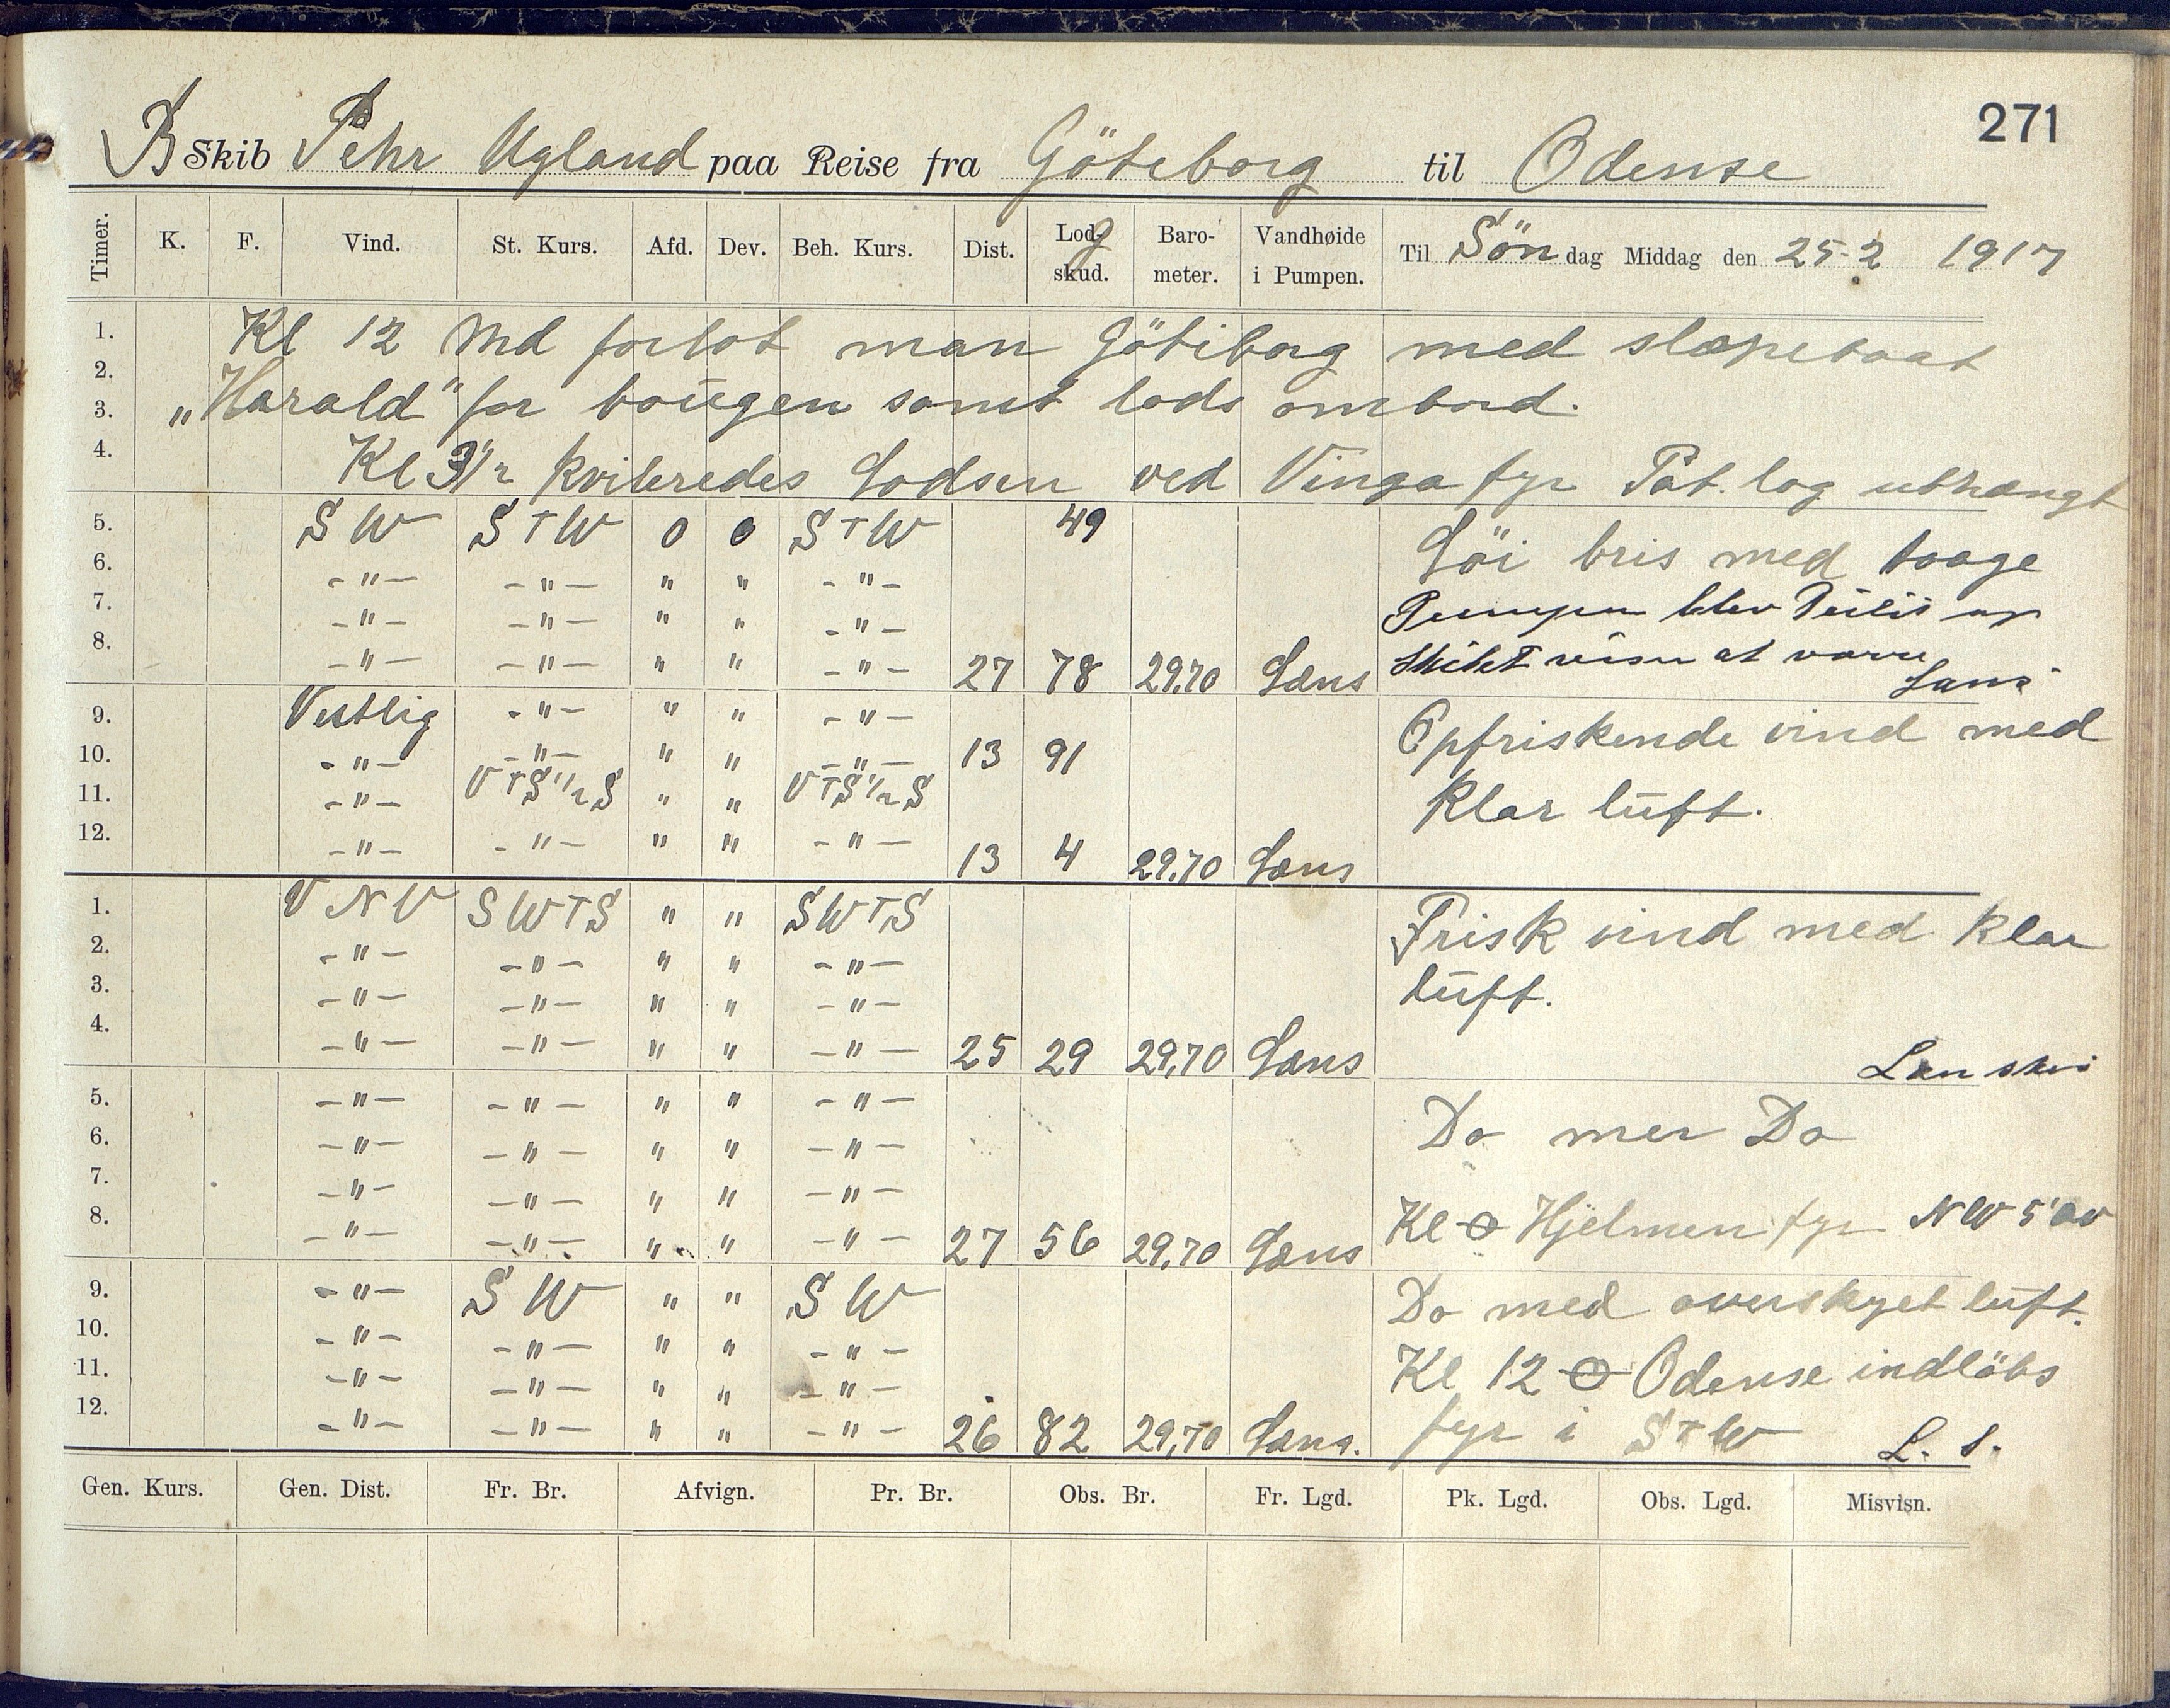 271
B Skib Pehr Ugland paa Reise fra Göteborg til Odense
Timer. K. F. Vind. St. Kurs. Afd. Dev. Beh. Kurs. Dist. Log skud. Baro-meter. Vandhøide i Pumpen. Til Sön dag Middag den 25-2 1917
1. Kl 12 Md forlot man Götiborg med slæpebaat
2.
3. „Harald" for baugen samt lods ombord.
4. Kl 3 1/2 kviteredes Lodsen ved Vinga fyr Pat. log uthængt
5. SW STW 0 0 STW 49 Löi bris med taage
6. -"- -"- " " -"-
7. -"- -"- " " -"- Pumpen blev Peilit og
8. -"- -"- " " -"- 27 78 29.70 Læns Skibet at være Læns
9. Vestlig -"- " " -"- Opfriskende vind med
10. -"- -"- " " -"- 13 91
11. -"- VTS 1/2 S " " VTS 1/2 S klar luft.
12. -"- -"- " " -"- 13 4 29.70 Læns
1. VNV SWTS " " SWTS Frisk vind med klar
2. -"- -"- " " -"-
3. -"- -"- " " -"- luft.
4. -"- -"- " " -"- 25 29 29,70 Læns
5. -"- -"- " " -"- Do mer Do
6. -"- -"- " " -"-
7. -"- -"- " " -"-
8. -"- -"- " " -"- 27 56 29,70 Læns Kl Hjelmen fyr NW 5' av
9. -"- SW " " SW Do med overskyet luft.
10. -"- -"- " " -"-
11. -"- -"- " " -"- Kl 12 Odense indlöbs
12. -"- -"- " " -"- 26 82 29,70 Læns. fyr i STW L. S.
Gen. Kurs. Gen. Dist. Fr. Br. Afvign. Pr. Br. Obs. Br. Fr. Lgd. Pk. Lgd. Obs. Lgd. Misvisn.